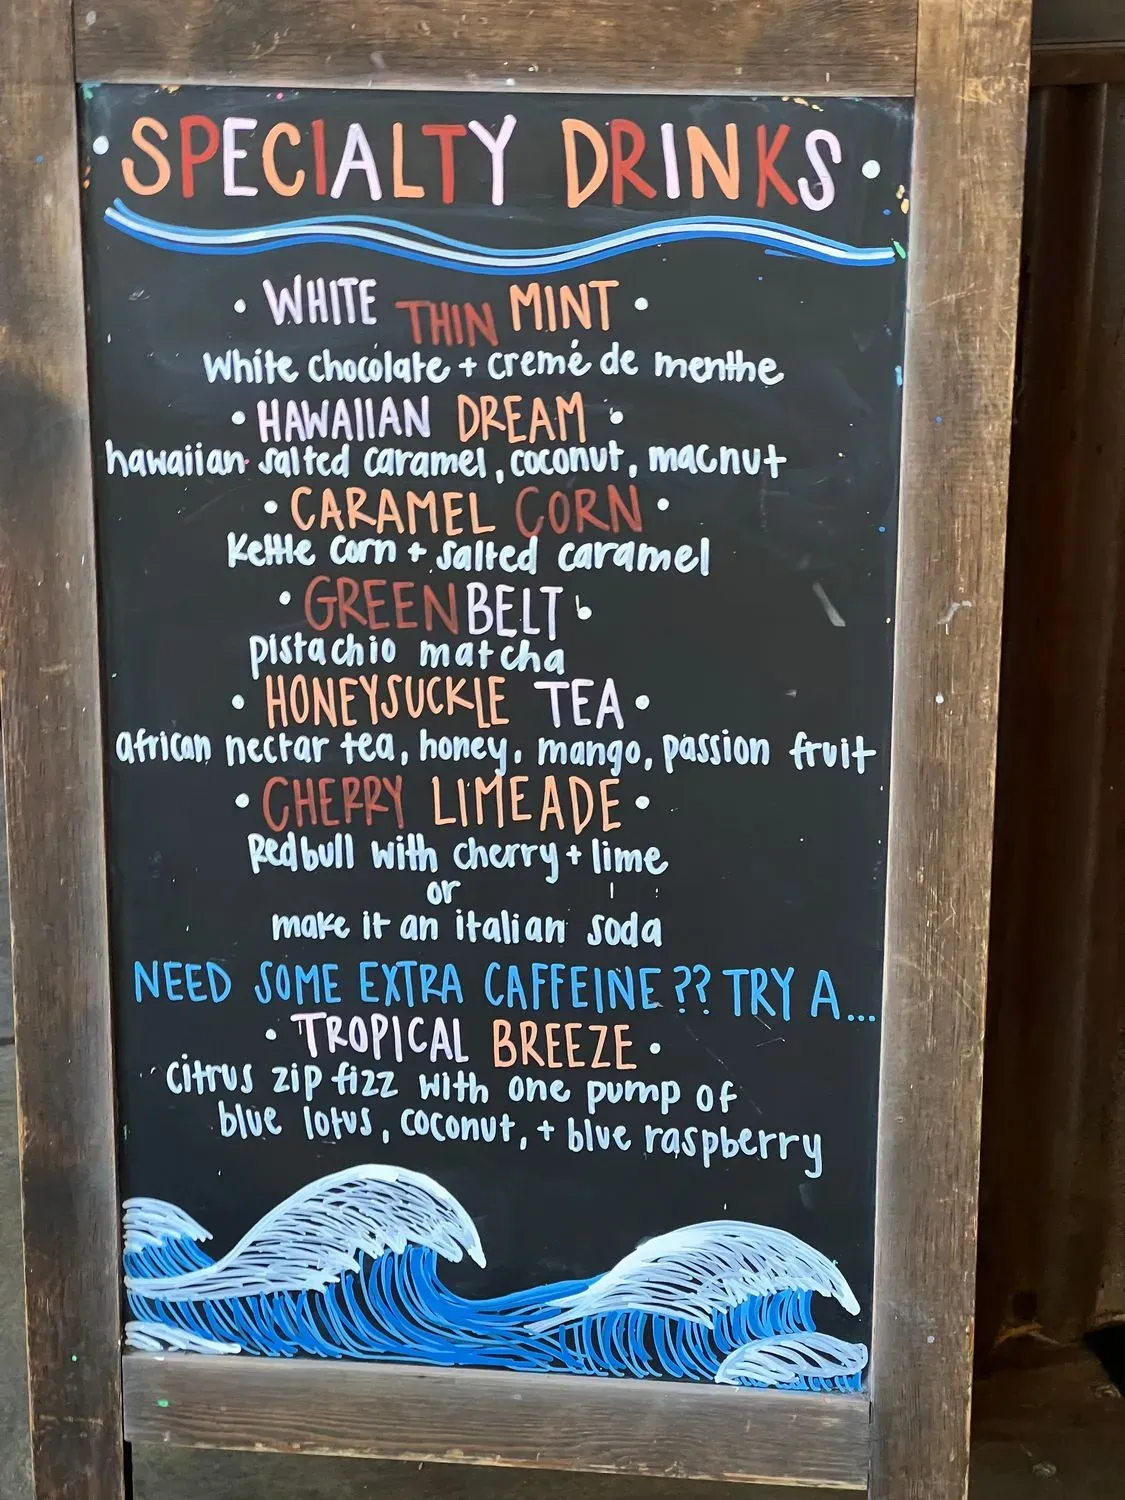 • SPECIALTY DRINKS •
• WHITE THIN MINT •
White chocolate + cremé de menthe
• HAWAIIAN DREAM •
hawaiian salted caramel, coconut, macnut
• CARAMEL CORN •
Kettle corn + salted caramel
• GREENBELT •
pistachio matcha
• HONEYSUCKLE TEA •
african nectar tea, honey, mango, passion fruit
• CHERRY LIMEADE •
Redbull with cherry + lime
or
make it an italian soda
NEED SOME EXTRA CAFFEINE?? TRY A...
• TROPICAL BREEZE •
citrus zip fizz with one pump of
blue lotus, coconut, + blue raspberry